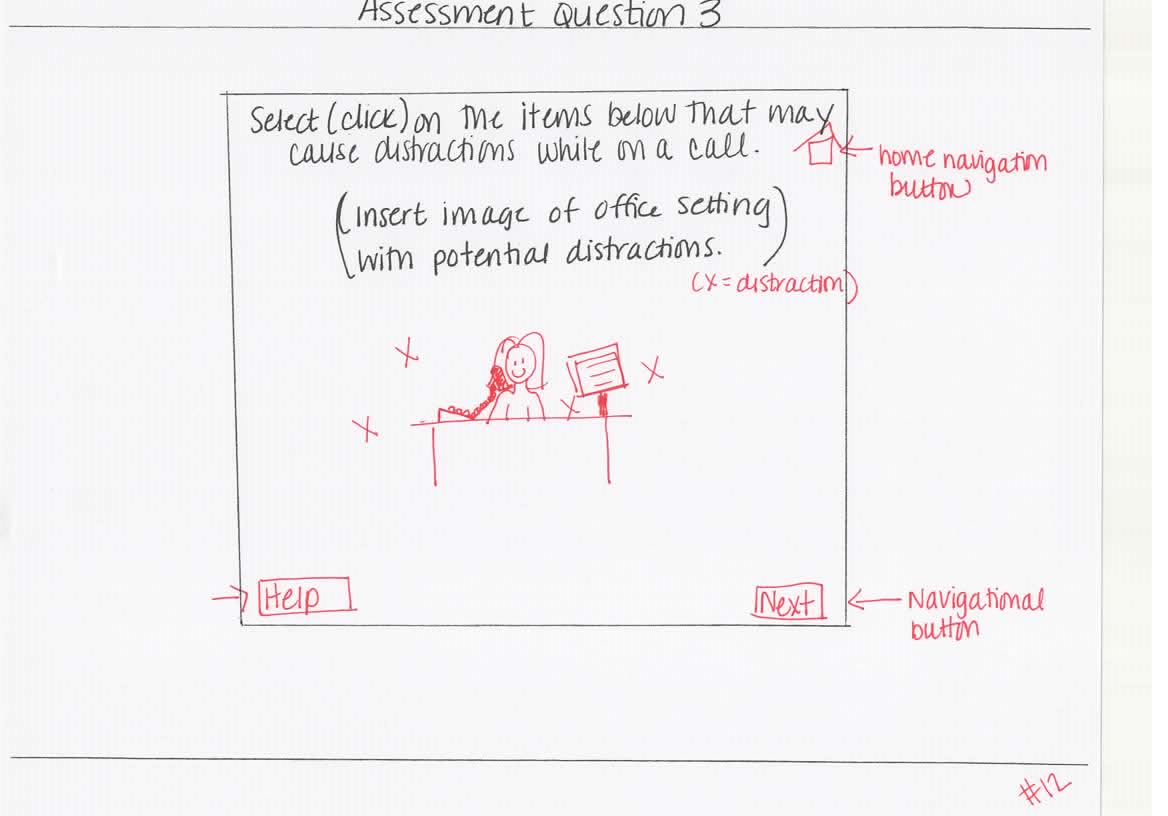 Assessment Question 3
Select (click) on the items below that may
cause distractions while on a call.
home navigation
button
(Insert image of office setting
with potential distractions.)
(x = distraction)
X
X
X
X
Help
Next
Navigational
button
#12